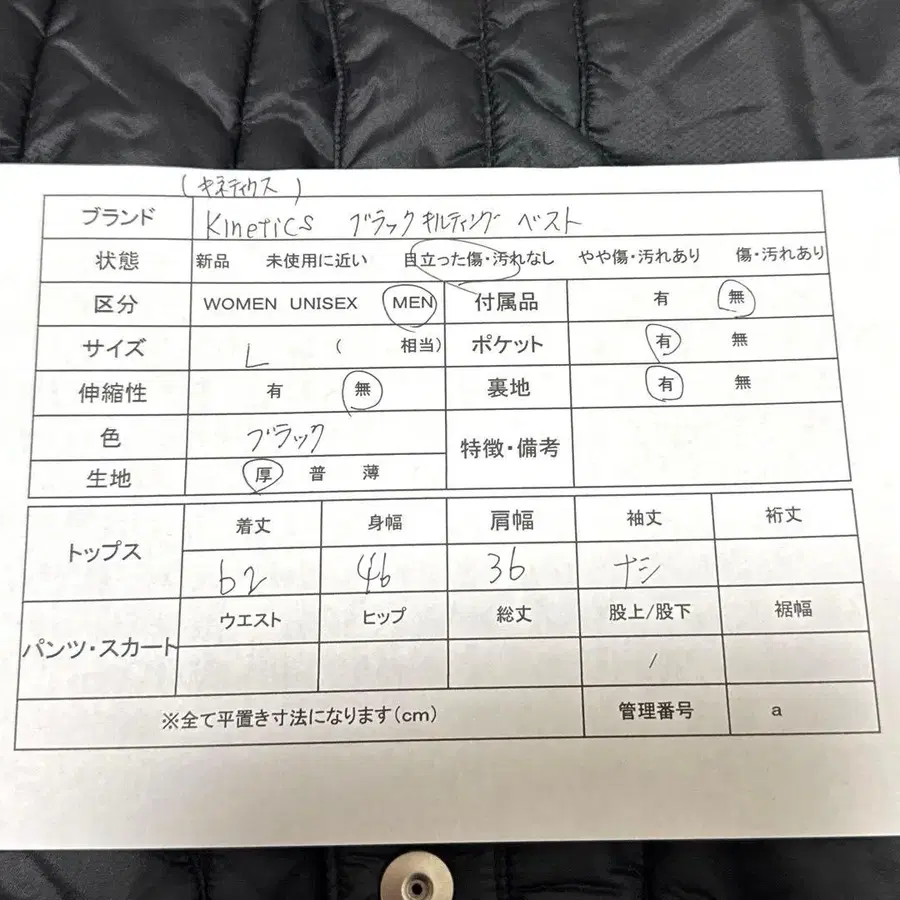 (キネティクス)
ブランド Kinetics ブラックキルティング ベスト
状態 新品 未使用に近い 目立った傷・汚れなし やや傷・汚れあり 傷・汚れあり
区分 WOMEN UNISEX MEN 付属品 有 無
サイズ L ( 相当) ポケット 有 無
伸縮性 有 無 裏地 有 無
色 ブラック 特徴・備考
生地 厚 普 薄
トップス 着丈 身幅 肩幅 袖丈 裄丈
62 46 36 ナシ
パンツ・スカート ウエスト ヒップ 総丈 股上/股下 裾幅
/
※全て平置き寸法になります(cm) 管理番号 a